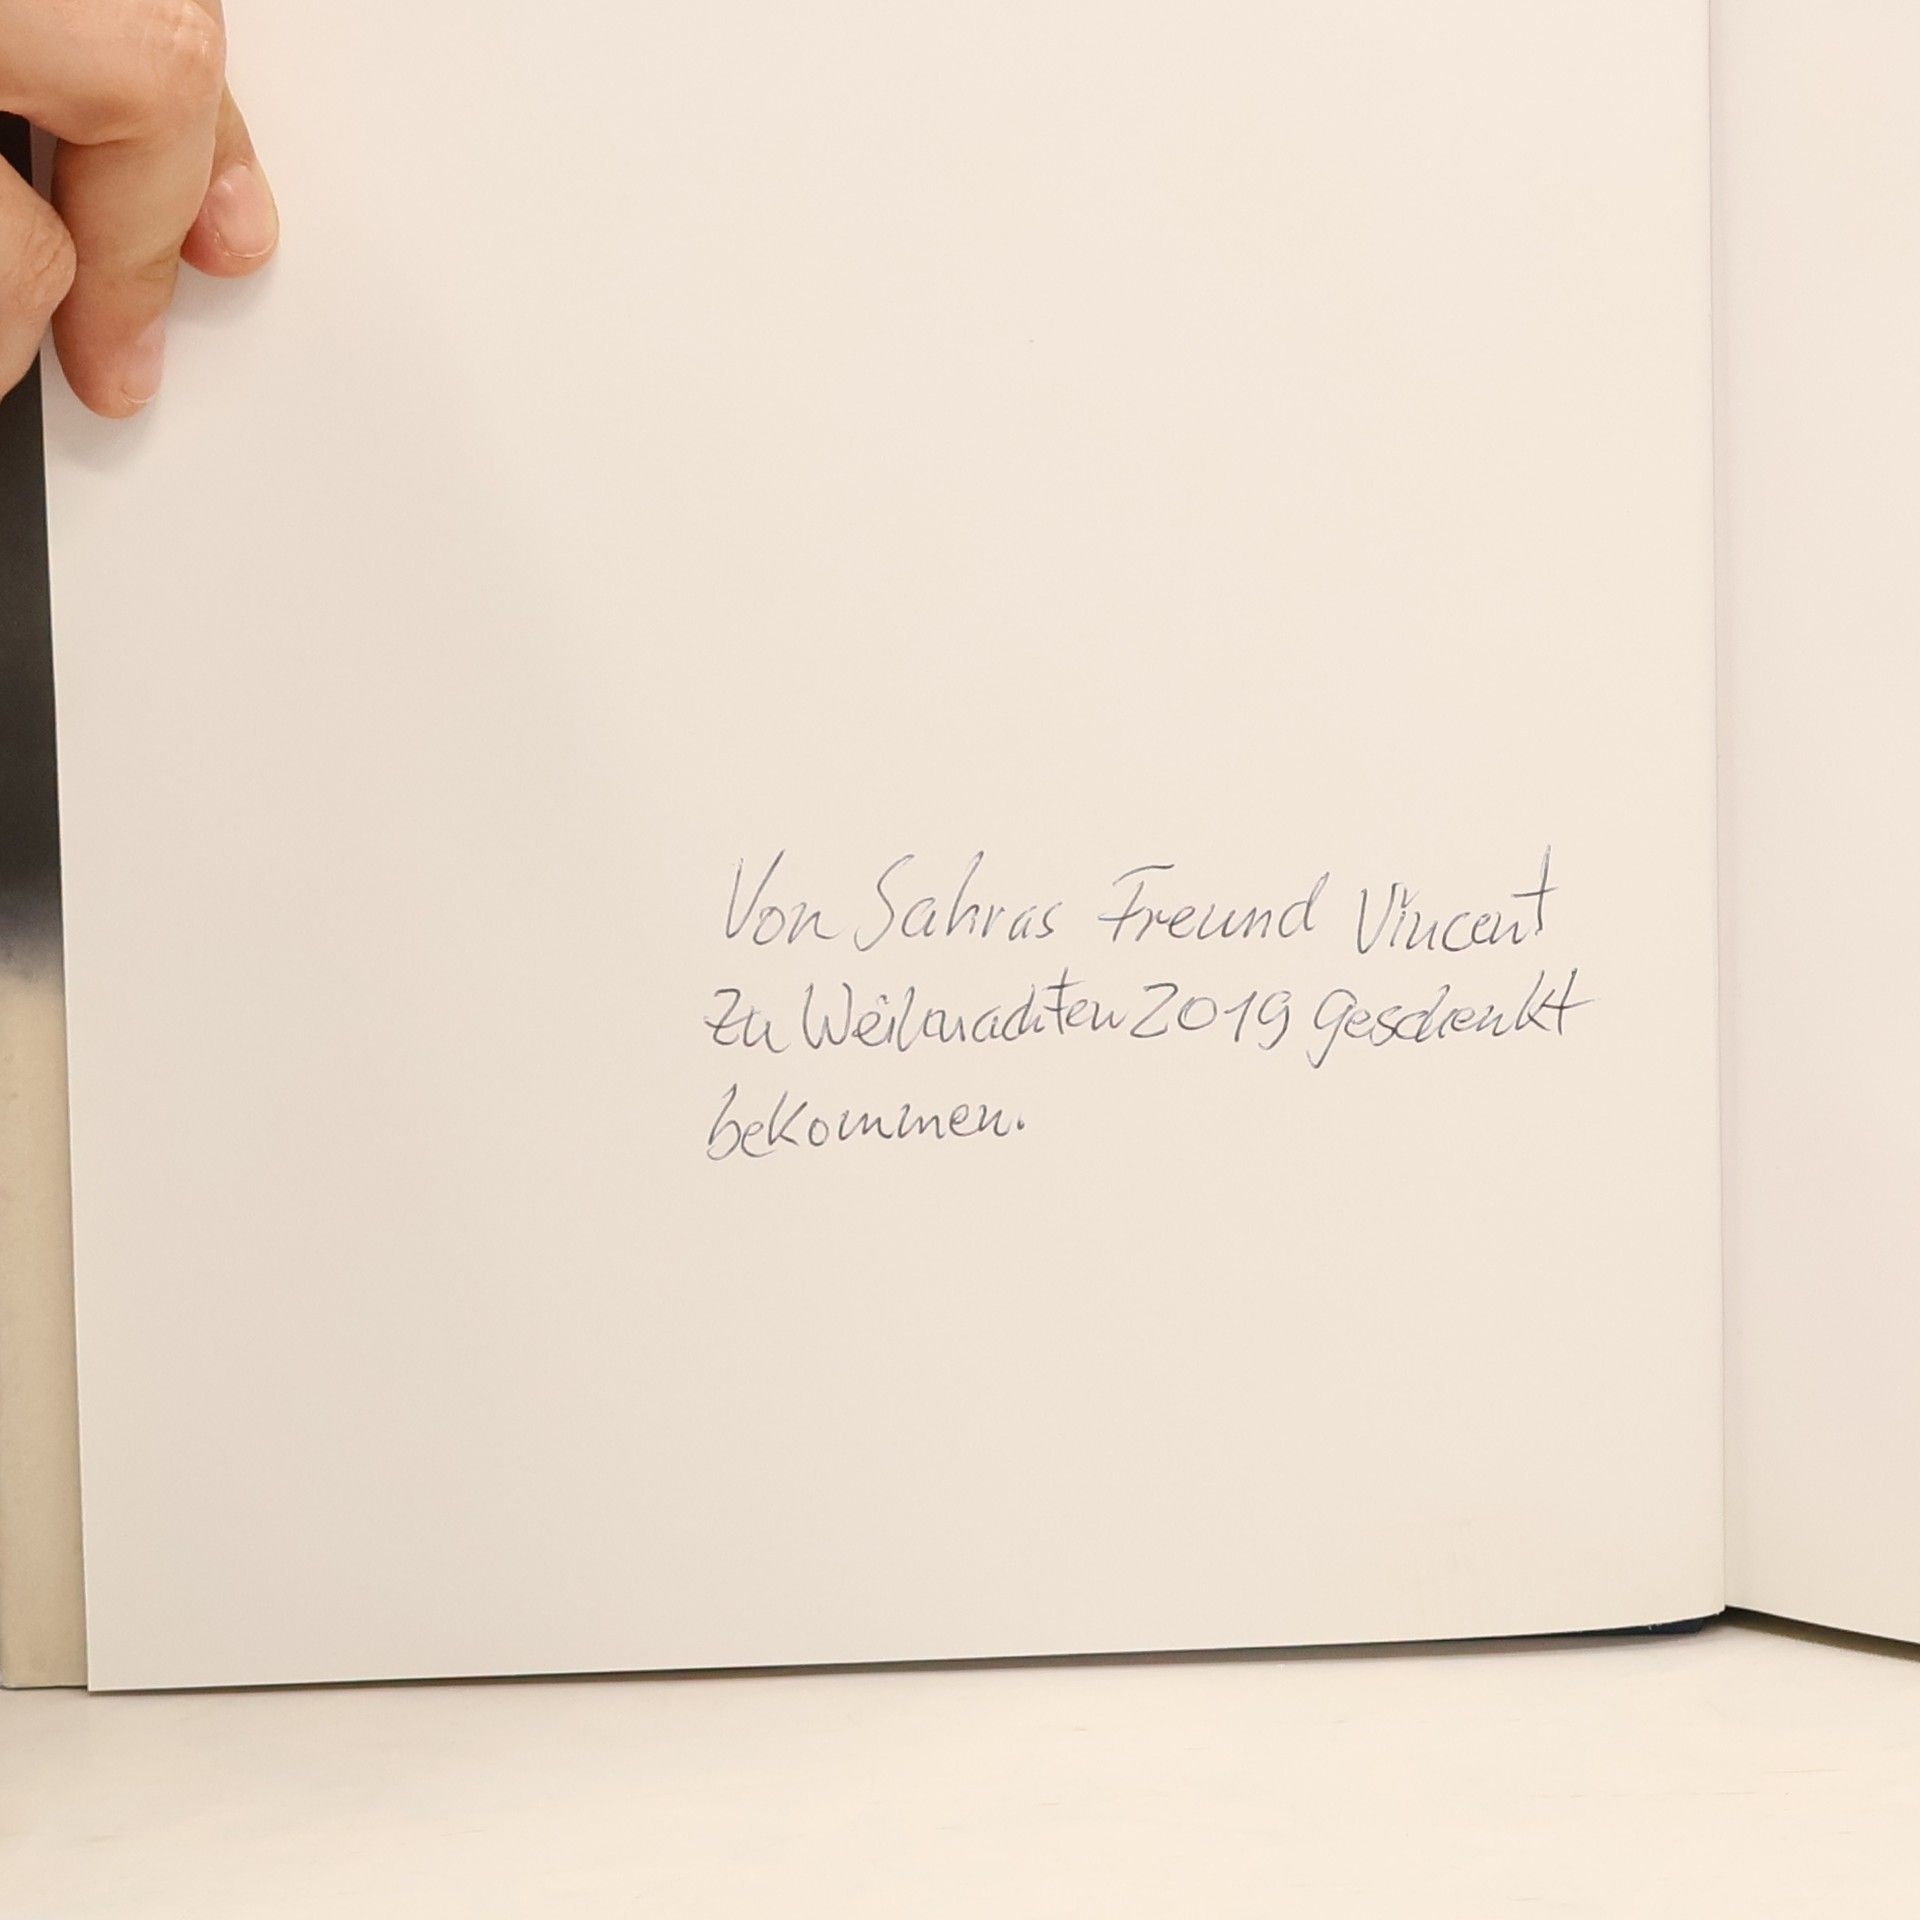 Von Sahras Freund Vincent
zu Weihnachten 2019 geschenkt
bekommen.